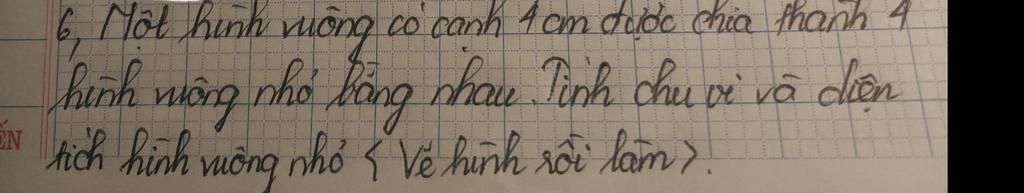 6, Một hình vuông có cạnh 4 cm được chia thành 4
hình vuông nhỏ bằng nhau. Tính chu vi và diện
tích hình vuông nhỏ < Vẽ hình rồi làm>.
ẾN